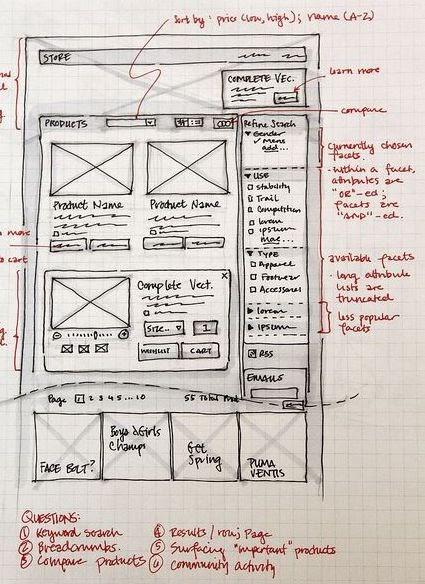 Sort by: price (low, high); name (A-Z)
STORE
COMPLETE VEC.
learn more
compare
PRODUCTS
Refine Search
Gender
✓ Mens
add...
currently chosen facets.
USE
stability
Trail
Competition
lorem
ipsum
more...
within a facet,
attributes are
"OR"-ed;
facets are
"AND"-ed.
Product Name
Product Name
more
to cart
TYPE
Apparel
Footwear
Accessories
available facets
long attribute
lists are
truncated
lorem
ipsum
less popular
facets
x
Complete Vect.
SIZE..
1
WISHLIST
CART
RSS
EMAILS
Page 1 2 3 4 5 ... 10
55 Total Prod
FACE BOLT?
Boys & Girls
Champs
Get
Spring
PUMA
VENTIS
QUESTIONS:
① Keyword search
② Breadcrumbs.
③ Compare products
④ Results / row; Page
⑤ Surfacing "important" products
⑥ Community activity